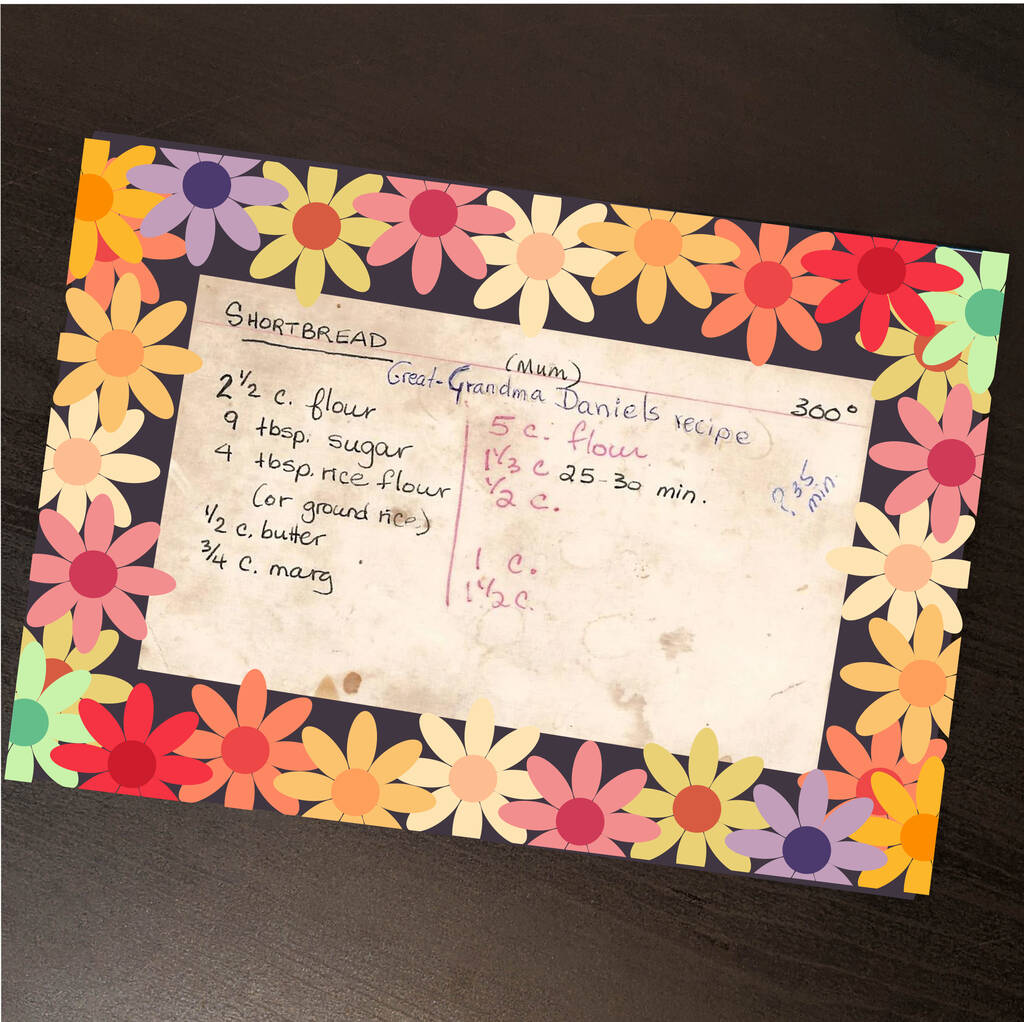 SHORTBREAD
(Mum)
300°
Great-Grandma Daniels recipe
2 1/2 c. flour
9 tbsp. sugar
4 tbsp. rice flour
(or ground rice)
1/2 c. butter
3/4 c. marg
5 c. flour
1 1/3 c
25-30 min.
1/2 c.
1 c.
1 1/2 c.
? 35
min.